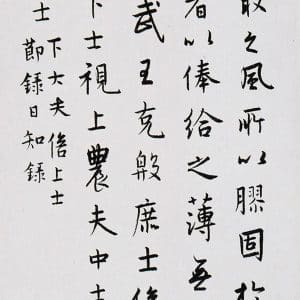 取之風所以膠固於
者以俸給之薄無
武王克殷庶士倍
下士視上農夫中士
士
下大夫倍上士
節錄日知錄